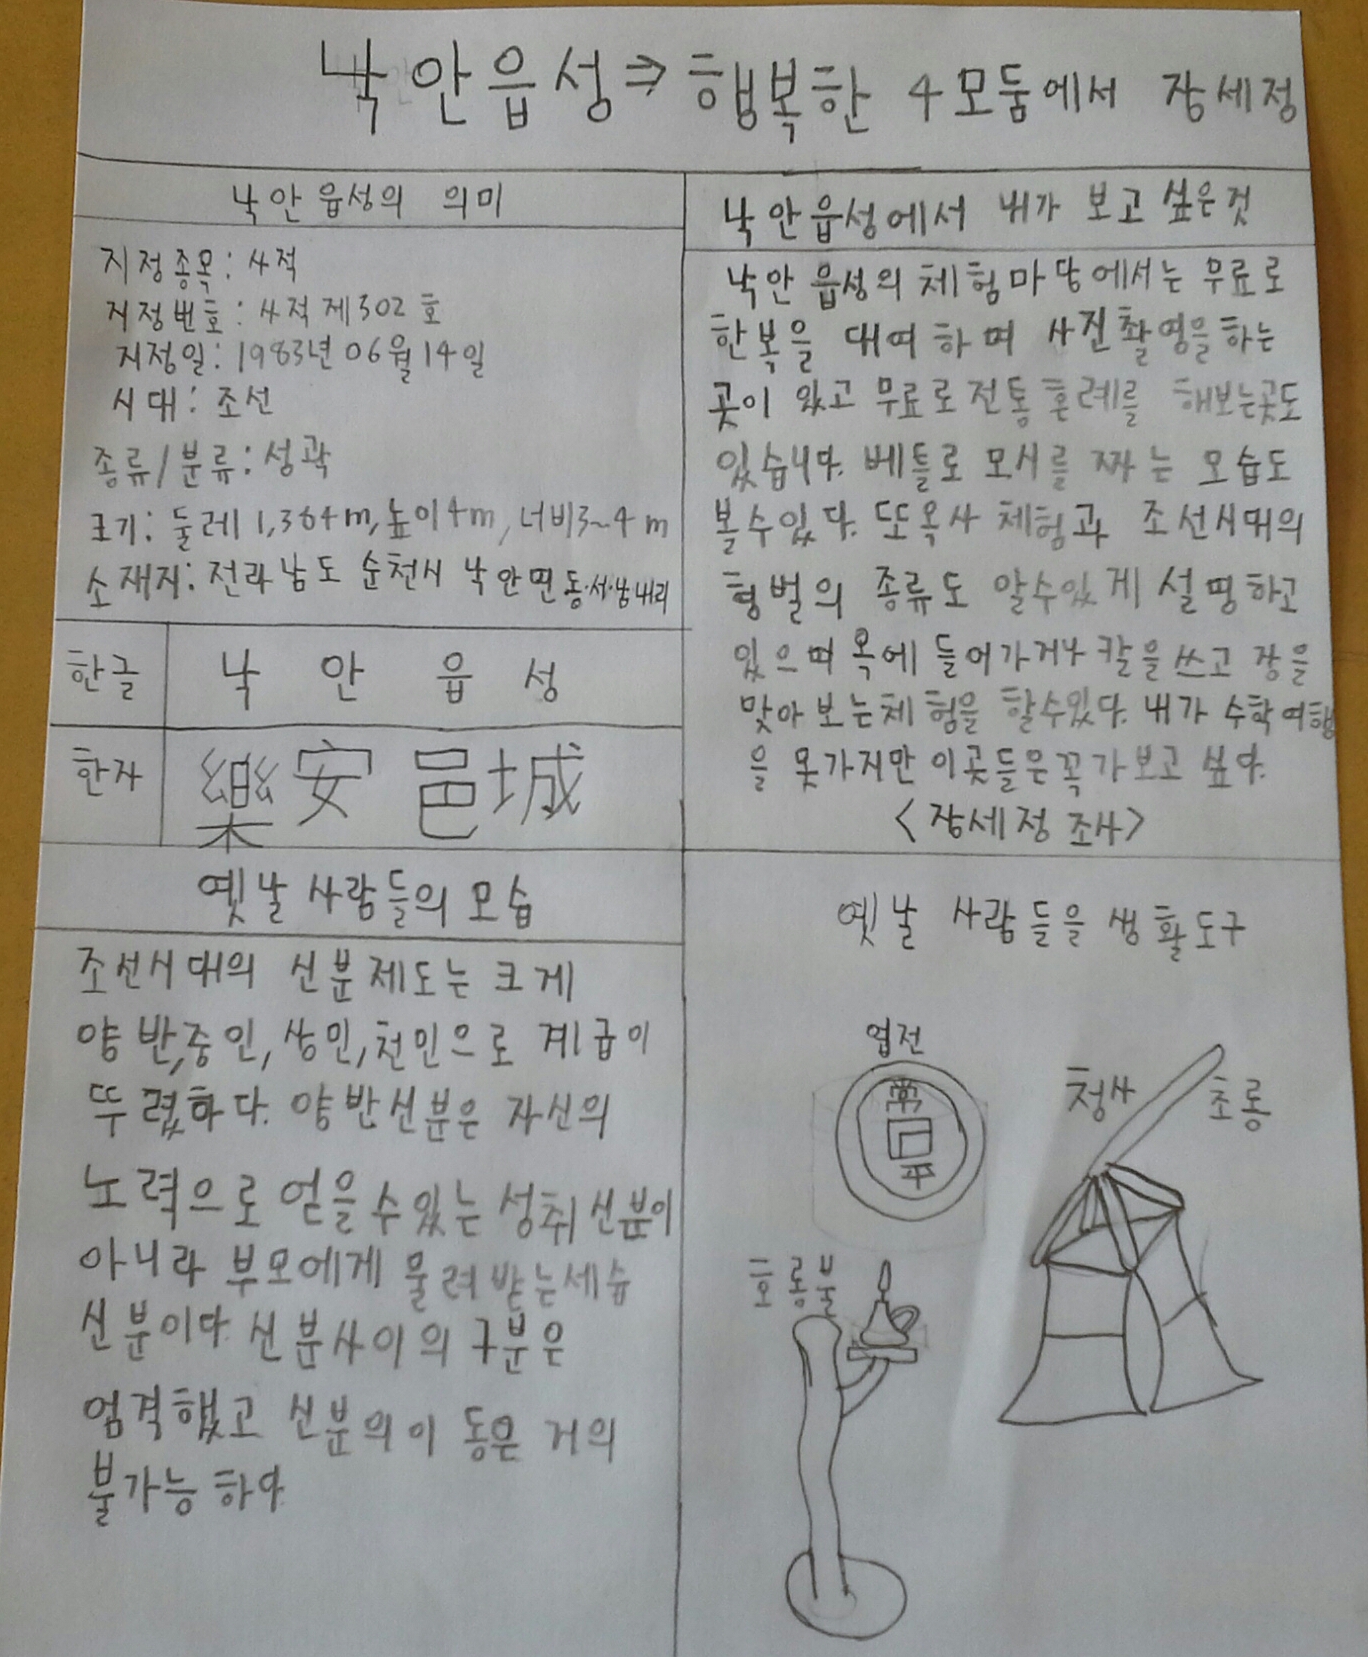 낙안읍성⇒행복한 4모둠에서 장세정
낙안읍성의 의미
지정종목: 사적
지정번호: 사적 제302호
지정일: 1983년 06월 14일
시대: 조선
종류/분류: 성곽
크기: 둘레 1,384m, 높이4m, 너비3~4m
소재지: 전라남도 순천시 낙안면 동·서·남내리
한글 낙 안 읍 성
한자 樂安邑城
낙안읍성에서 내가 보고 싶은것
낙안읍성의 체험마당에서는 무료로
한복을 대여하며 사진촬영을하는
곳이 있고 무료로 전통혼례를 해보는곳도
있습니다. 베틀로 모시를 짜는 모습도
볼수있다. 또옥사 체험과 조선시대의
형벌의 종류도 알수있게 설명하고
있으며 옥에 들어가거나 칼을 쓰고 장을
맞아 보는체험을 할수있다. 내가 수학여행
을 못가지만 이곳들은꼭가보고 싶다.
<장세정 조사>
옛날 사람들의 모습
조선시대의 신분제도는 크게
양반,중인,상민,천민으로 계급이
뚜렸하다. 양반신분은 자신의
노력으로 얻을수있는 성취신분이
아니라 부모에게 물려받는세습
신분이다 신분사이의 구분은
엄격했고 신분의이동은 거의
불가능 하다
옛날 사람들을 생활도구
엽전
常
平
청사 초롱
호롱불